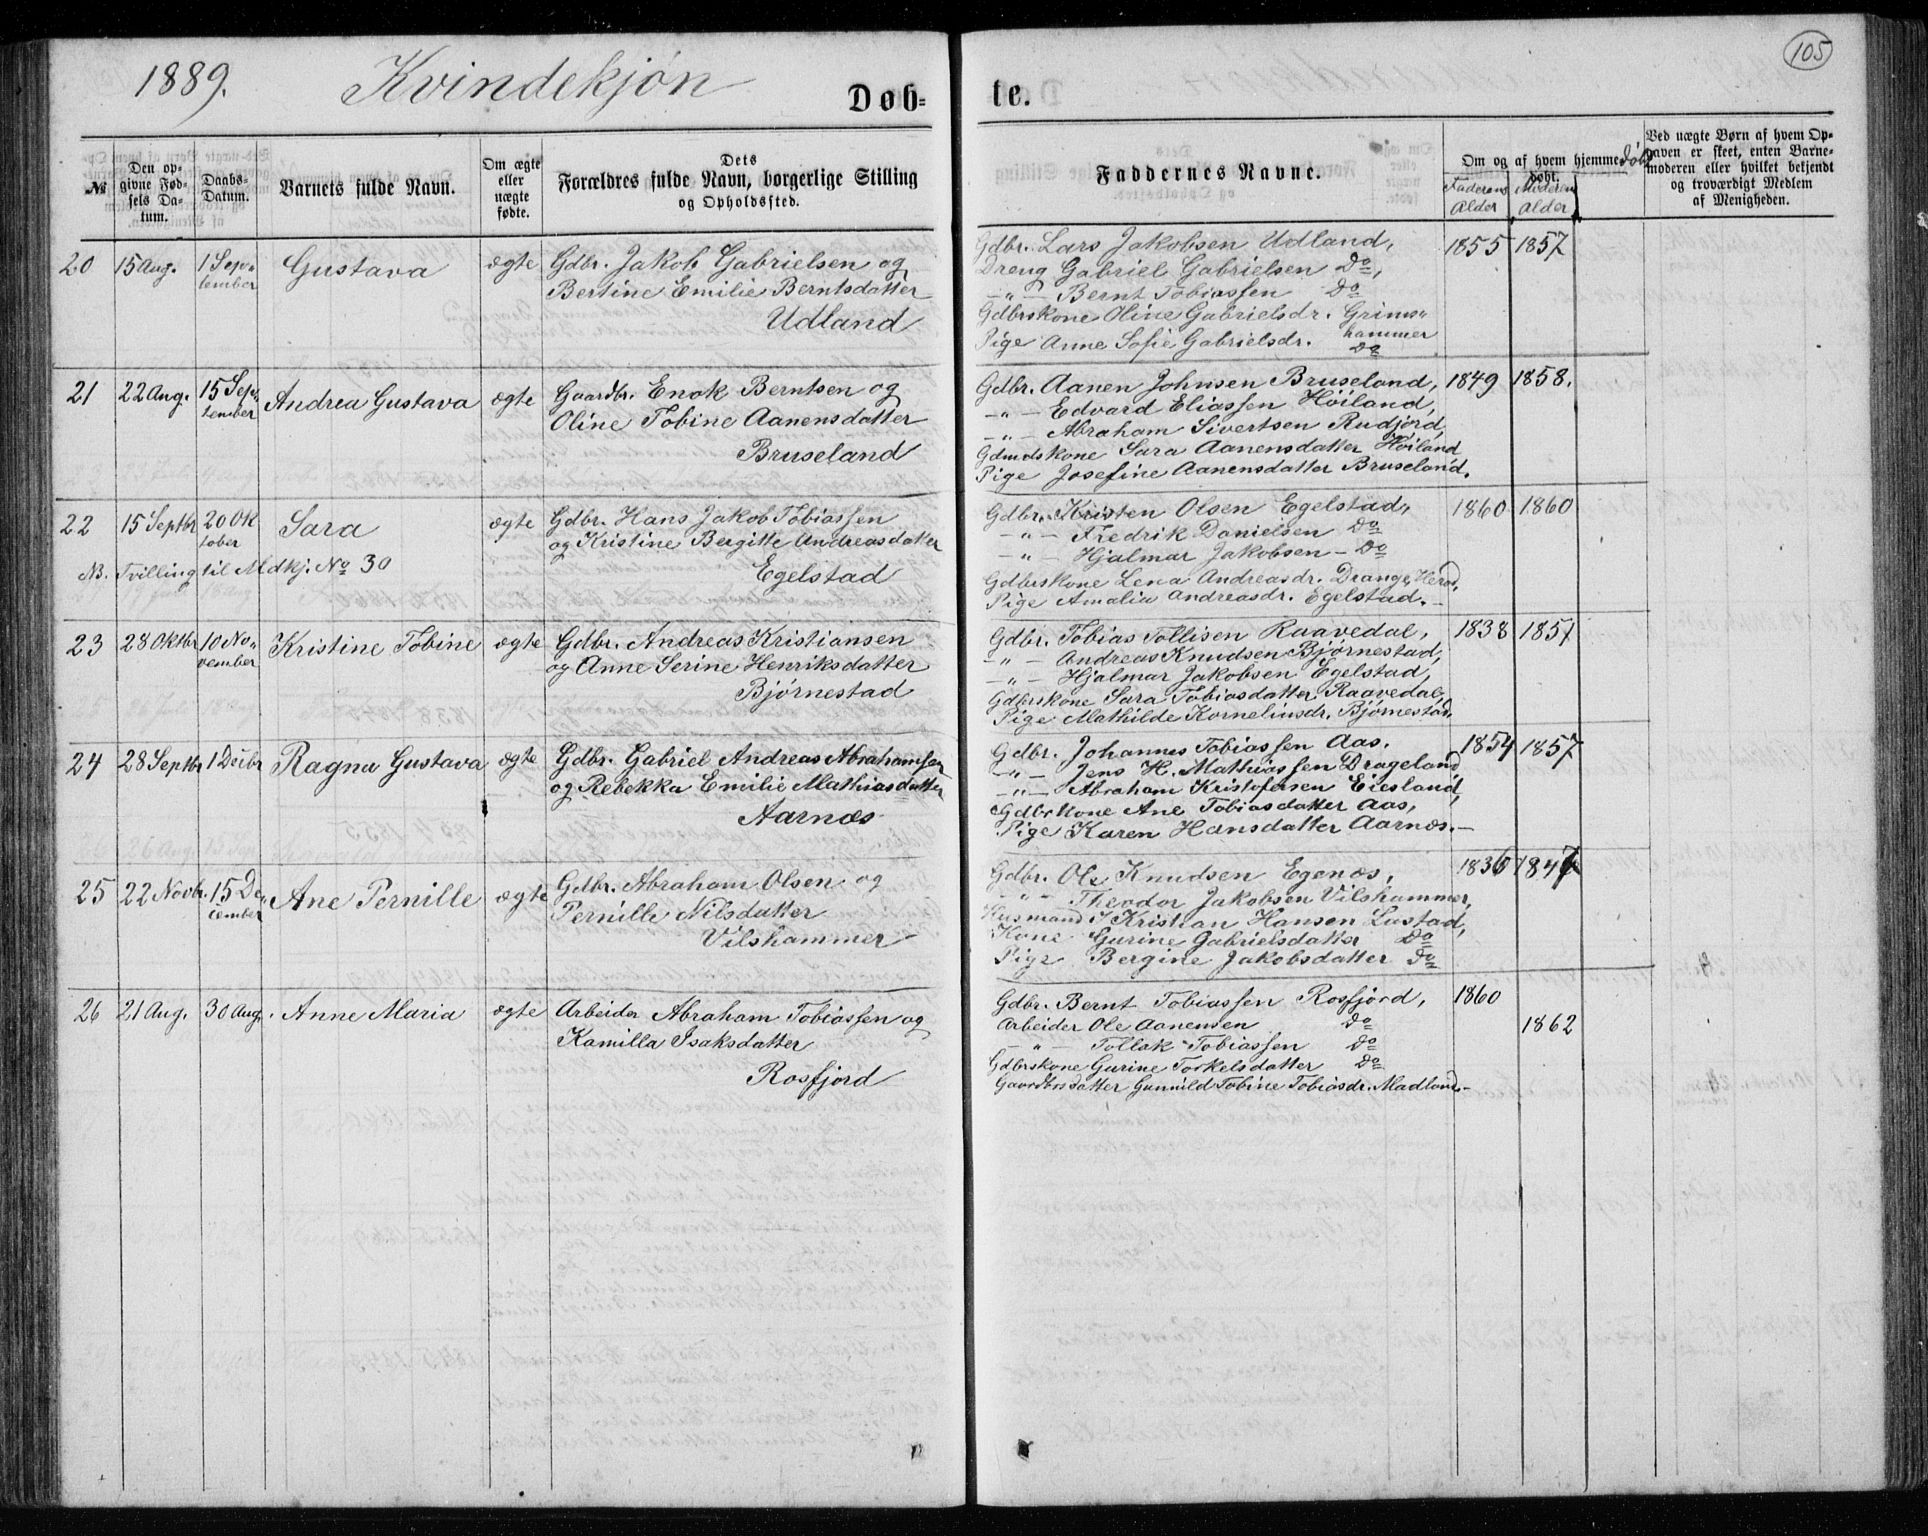 1889. Kvindekjøn Døb= te. 105
№
Den opgivne Fødsels Datum.
Daabs-Datum.
Barnets fulde Navn.
Om ægte eller uægte fødte.
Dets Forældres fulde Navn, borgerlige Stilling og Opholdssted.
Faddernes Navne.
Om og af hvem hjemmedøbt.
Faderens Alder
Moderens Alder
Ved uægte Børn af hvem Opgaven er skeet, enten Barnemoderen eller hvilket bekjendt og troværdigt Medlem af Menigheden.
20 15 Aug. 1 September Gustava ægte Gdbr. Jakob Gabrielsen og
Bertine Emilie Berntsdatter
Udland
Gdbr. Lars Jakobsen Udland, 1855 1857
Dreng Gabriel Gabrielsen Do,
–"– Bernt Tobiassen Do
Gdbrskone Oline Gabrielsdr. Grims"
Pige Anne Sofie Gabrielsdr. hammer
Do
21 22 Aug. 15 September Andrea Gustava ægte Gaardbr. Enok Berntsen og
Oline Tobine Aanensdatter
Bruseland
Gdbr. Aanen Johnsen Bruseland, 1849 1858.
–"– Edvard Eliassen Høiland,
–"– Abraham Sivertsen Rudjord,
Gdmdskone Sara Aanensdatter Høiland
Pige Josefine Aanensdatter Bruseland.
22 15 Septbr 20 Oktober Sara ægte Gdbr. Hans Jakob Tobiassen
og Kristine Bergitte Andreasdatter
NB. Tvilling til Mdkj. No 30
Egelstad
Gdbr. Kristen Olsen Egelstad, 1860 1860
–"– Fredrik Danielsen Do
–"– Hjalmar Jakobsen – Do
Gdbrskone Lena Andreasdr. Drange, Herad,
Pige Amalia Andreasdr. Egelstad.–
23 28 Oktbr 10 November Kristine Tobine ægte Gdbr. Andreas Kristiansen
og Anne Serine Henriksdatter
Bjørnestad
Gdbr. Tobias Tollisen Raavedal, 1838 1857
–"– Andreas Knudsen Bjørnestad,
–"– Hjalmar Jakobsen Egelstad,
Gdbrskone Sara Tobiasdatter Raavedal,
Pige Mathilde Korneliusdr. Bjørnestad.
24 28 Septbr 1 Decbr Ragna Gustava ægte Gdbr. Gabriel Andreas Abrahamsen
og Rebekka Emilie Mathiasdatter
Aarnæs
Gdbr. Johannes Tobiassen Aas. 1854 1857
–"– Jens H. Mathiassen Drageland
–"– Abraham Kristofersen Eiesland,
Gdbrskone Ane Tobiasdatter Aas,
Pige Karen Hansdatter Aarnæs.–
25 22 Novbr. 15 December Ane Pernille ægte Gdbr. Abraham Olsen og
Pernille Nilsdatter
Vilshammer
Gdbr. Ole Knudsen Egenæs, 1836 1847
–"– Theodor Jakobsen Vilshammer,
Husmand Kristian Hansen Lastad,
Kone Gurine Gabrielsdatter Do
Pige Bergine Jakobsdatter Do
26 21 Aug. 30 Aug. Anne Maria ægte Arbeider Abraham Tobiassen og
Kamilla Isaksdatter
Rosfjord
Gdbr. Bernt Tobiassen Rosfjord, 1860
Arbeider Ole Aanensen Do 1862
–"– Tollak Tobiassen Do
Gdbrskone Gurine Torkelsdatter Do
Gaardbrsdatter Gunnild Tobine Tobiasdr. Madland.–